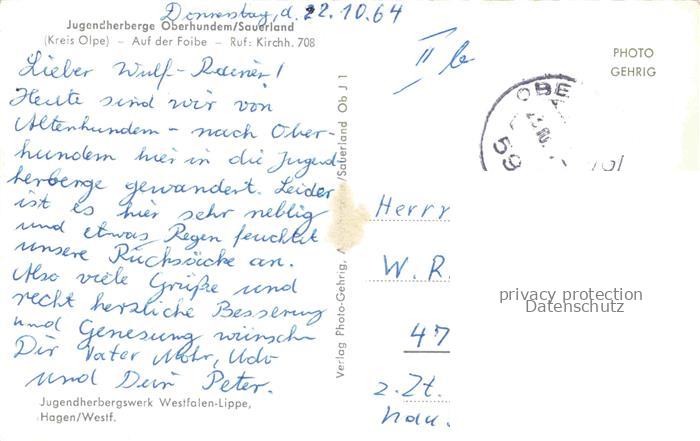 Donnerstag, d. 22.10.64
Jugendherberge Oberhundem/Sauerland
(Kreis Olpe) – Auf der Foibe – Ruf: Kirchh. 708
Lieber Wulf-Rainer!
Heute sind wir von
Altenhundem – nach Ober-
hundem hier in die Jugend-
herberge gewandert. Leider
ist es hier sehr neblig
und etwas Regen feuchtet
unsere Rucksäcke an.
Also viele Grüße und
recht herzliche Besserung
und Genesung wünschen
Dir Vater Mohr, Udo
und Dein Peter.
Jugendherbergswerk Westfalen-Lippe,
Hagen/Westf.
Verlag Photo-Gehrig, Sauerland Ob J 1
II b
PHOTO
GEHRIG
OBE
59
Herrn
W. R.
47
z. Zt.
privacy protection
Datenschutz